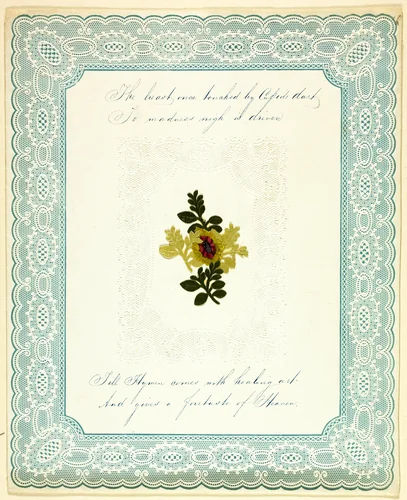 The heart, once touched by Cupids dart,
To madness nigh is driven
Till Hymen comes with healing art
And gives a foretaste of Heaven.